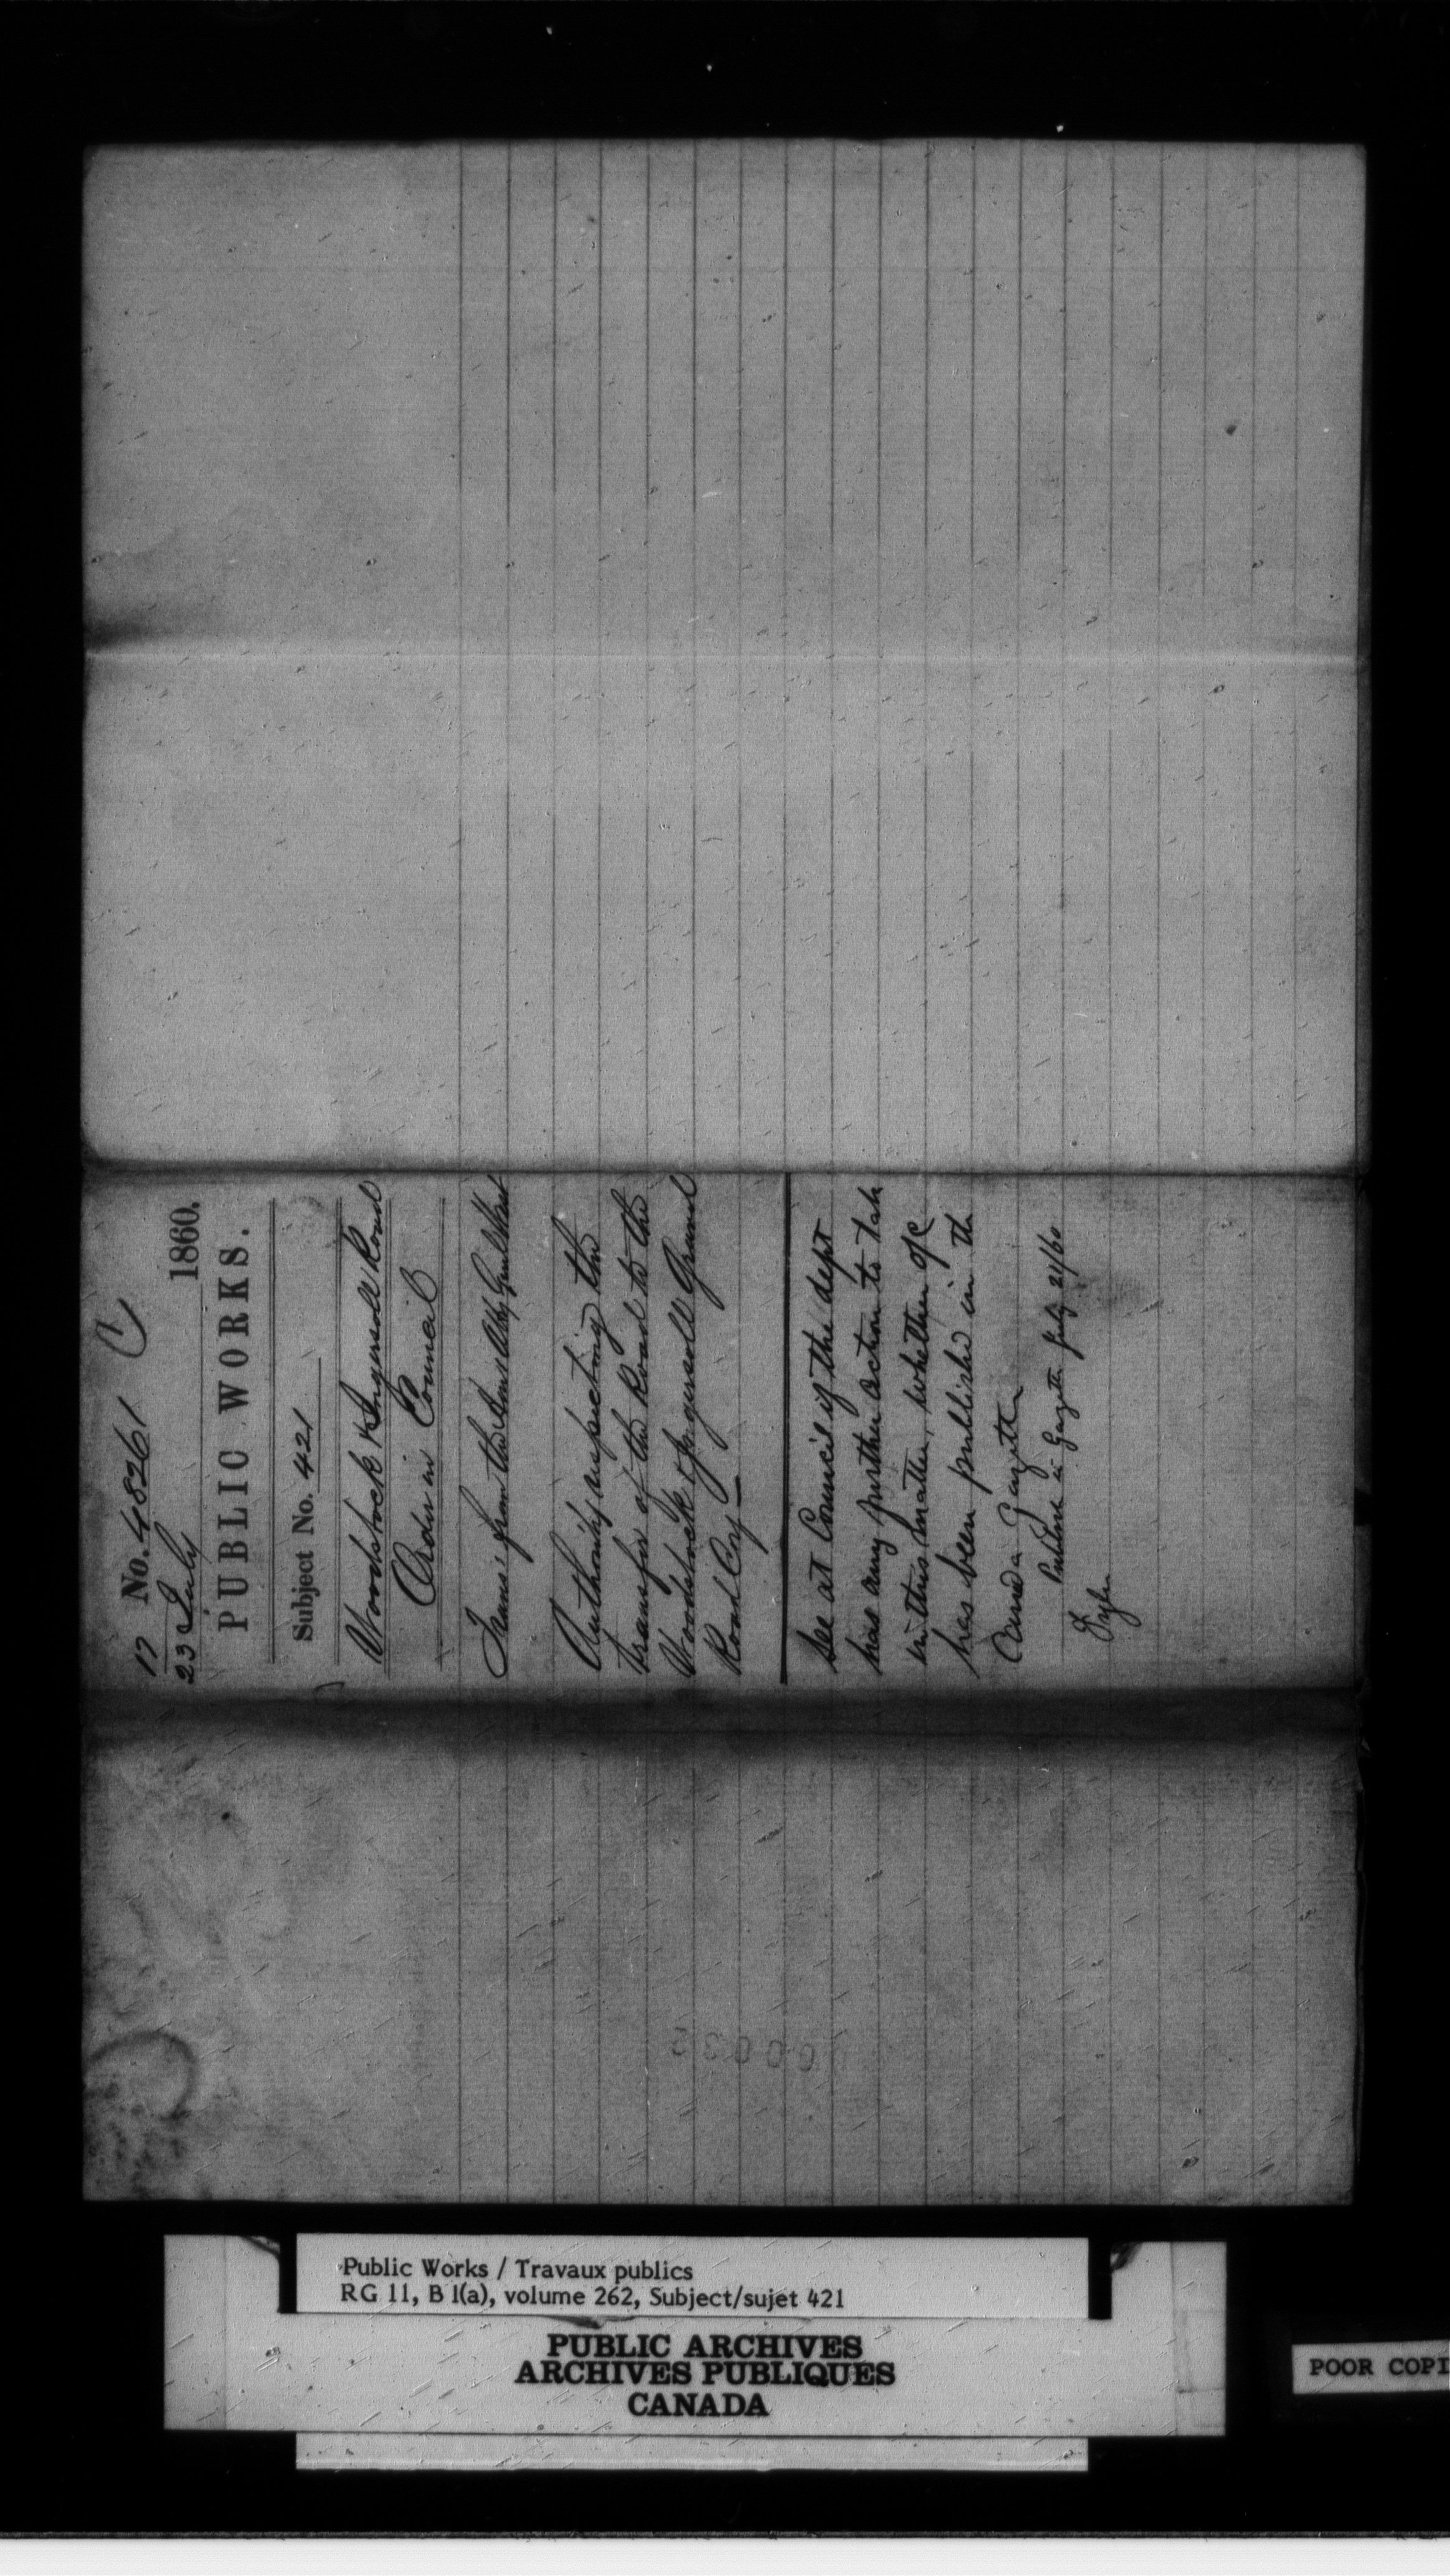 17 No. 48261 C
23 July 1860.
PUBLIC WORKS.
Subject No. 421
Woodstock & Ingersoll Road
Order in Council
from the Atty Genl West
Authority respecting the
transfer of the Road to the
Woodstock & Ingersoll Gravel
Road Coy —
See at Council if the dept
has any further action to take
in this matter, whether O/C
has been published in the
Canada Gazette
Published in Gazette July 21/60
Fyle
60032
Public Works / Travaux publics
RG 11, B 1(a), volume 262, Subject/sujet 421
PUBLIC ARCHIVES
ARCHIVES PUBLIQUES
CANADA
POOR COPI